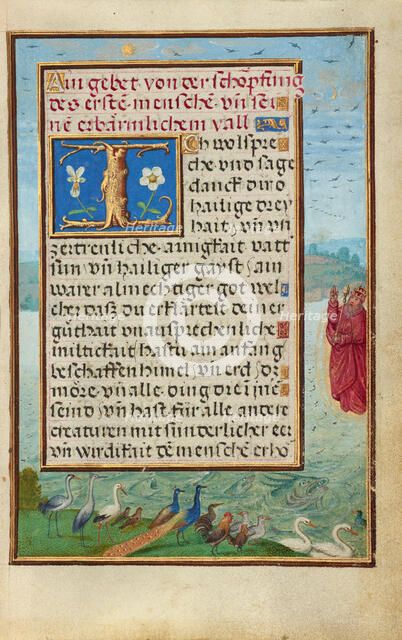 Ain gebet von der schöpfung
des erstē mensche vn̄ sei
nē erbärmlichem vall
Ich wolspre
che vnd sage
danck dir o
hailige drey
hait vn̄ vn
zertrenliche ainigkait vatt
sun vn̄ hailiger gayst ain
warer almechtiger got wel
cher daß du erklärtest dein er
güthait vn̄ ausprechenliche
miltikait hastu am anfang
beschaffen himel vn̄ erd dz
möre vn̄ alle ding dreinē
seind vn̄ hast für alle andere
creaturen mit sunderlicher eer
vn̄ wirdikait dē menschē erhö
Heritage
Images